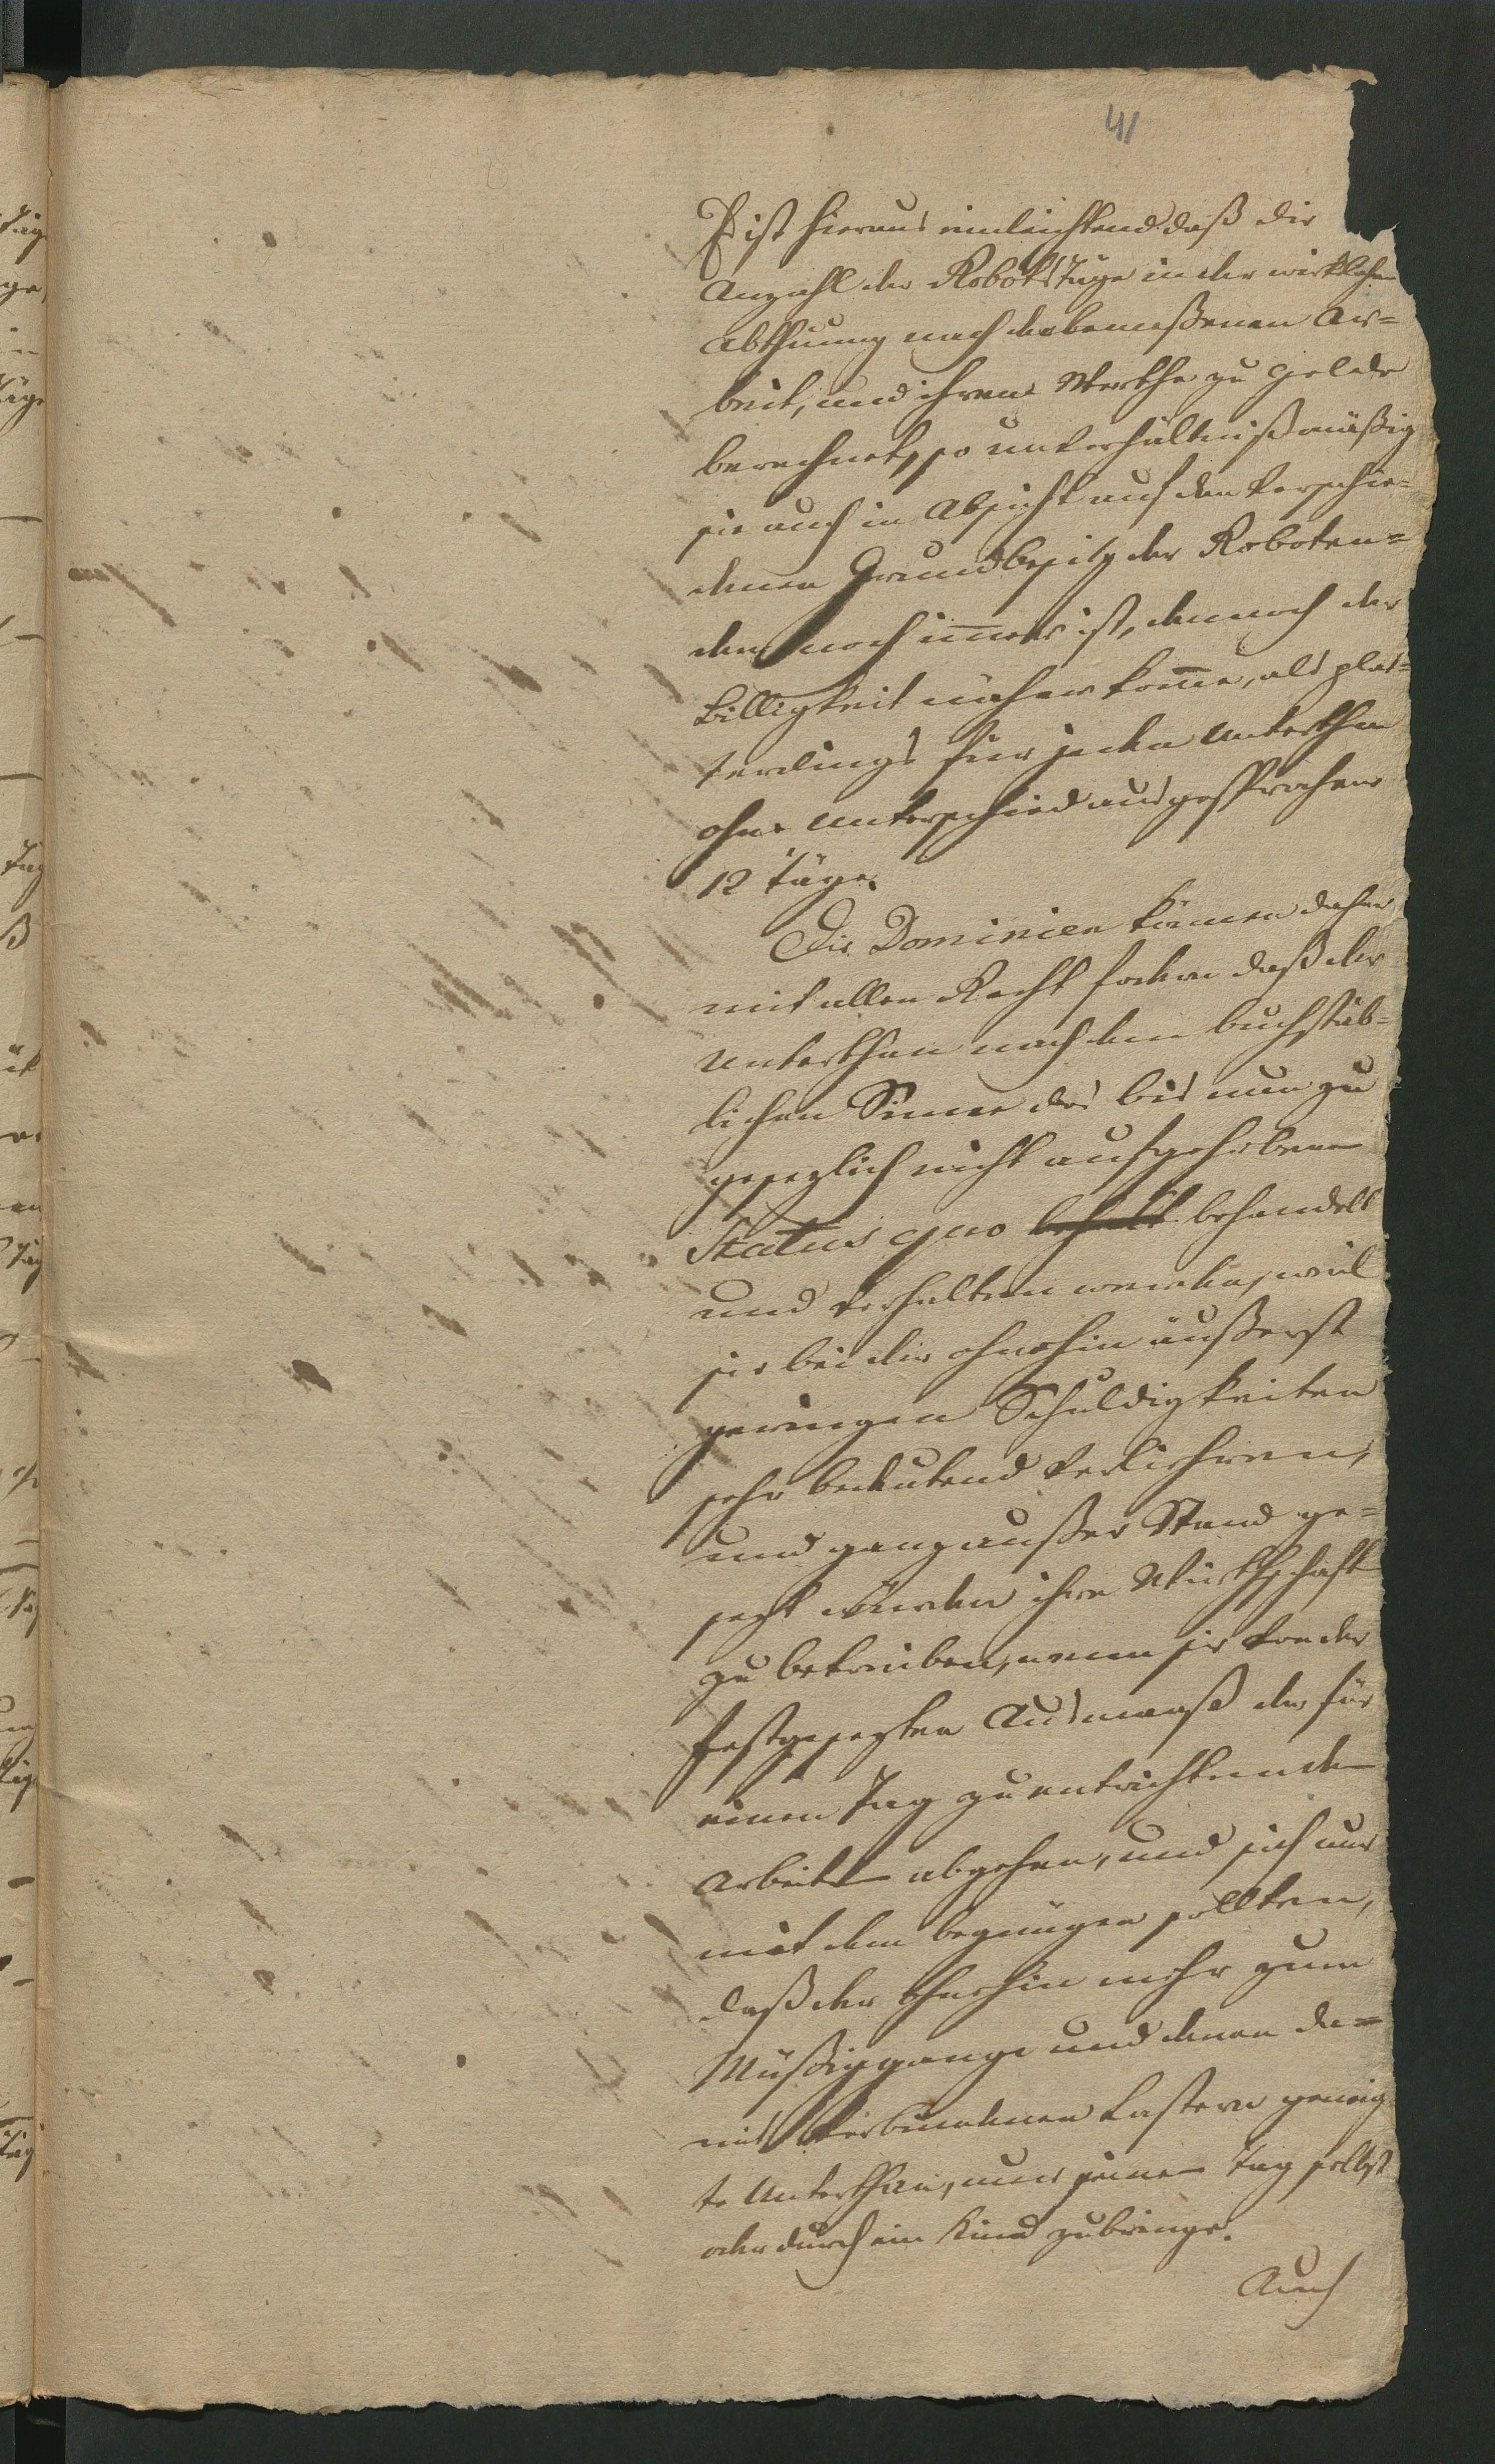 41
Es ist hieraus einleichtend daß die
Anzahl der RobothsTäge in der wirklichen
Abthuung nach der bemeßenen Ar=
beit, und ihrem Werthe zu Gelde
berechnet, so unverhältnißmäßig
sie auch in Absicht auf den verschie=
denen Grundbesitz der Roboten=
den noch im̄er ist, dennoch der
Billigkeit näher kom̄e, als plat=
terdings für jeden Unterthan
ohne Unterschied ausgesprochene
12 Täge.
Die Dominien können daher
mit allen Recht fodern daß der
Unterthan nach dem buchstäb=
lichen Sinne des bis nun zu
gesezlich nicht aufgehobenen
Status quo behandelt
und verhalten werden, weil
sie bei der ohnehin äußerst
geringen Schuldigkeiten
sehr bedeutend verliehren,
und ganz außer Stand ge=
sezt würden ihre Würthschaft
zu betreiben, wenn sie von der
festgesezten Ausmaaß der für
einen Tag zu entrichtenden
Arbeiten abgehen, und sich nur
mit dem begnügen sollten,
daß der ohnehin mehr zum
Müßiggange und denen da=
mit verbundenen Lastern geneig
te Unterthan, nur seinen Tag selbst
oder durch ein Kind zubringe.
Auch